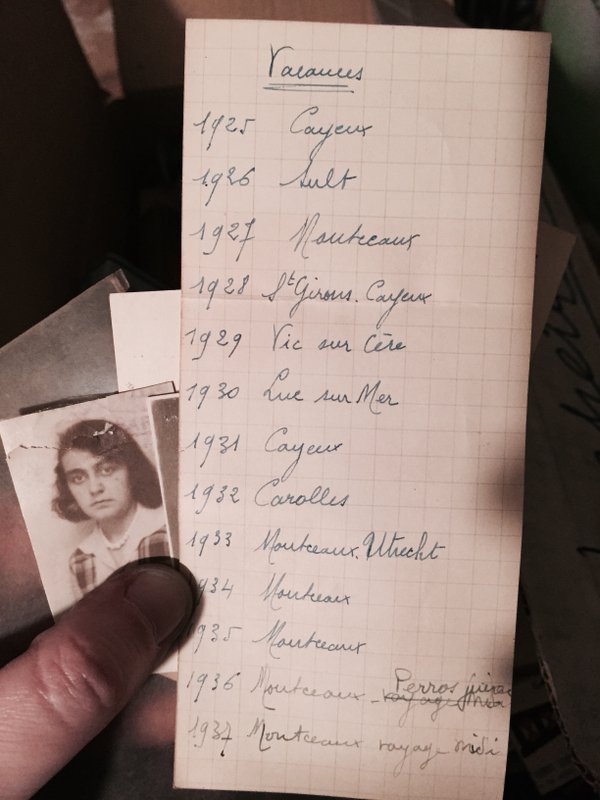 Vacances
1925 Cayeux
1926 Ault
1927 Montceaux
1928 St Girons. Cayeux
1929 Vic sur Cère
1930 Luc sur Mer
1931 Cayeux
1932 Carolles
1933 Montceaux. Utrecht
1934 Montceaux
1935 Montceaux
1936 Montceaux - Perros guirec
voyage midi
1937 Montceaux voyage midi